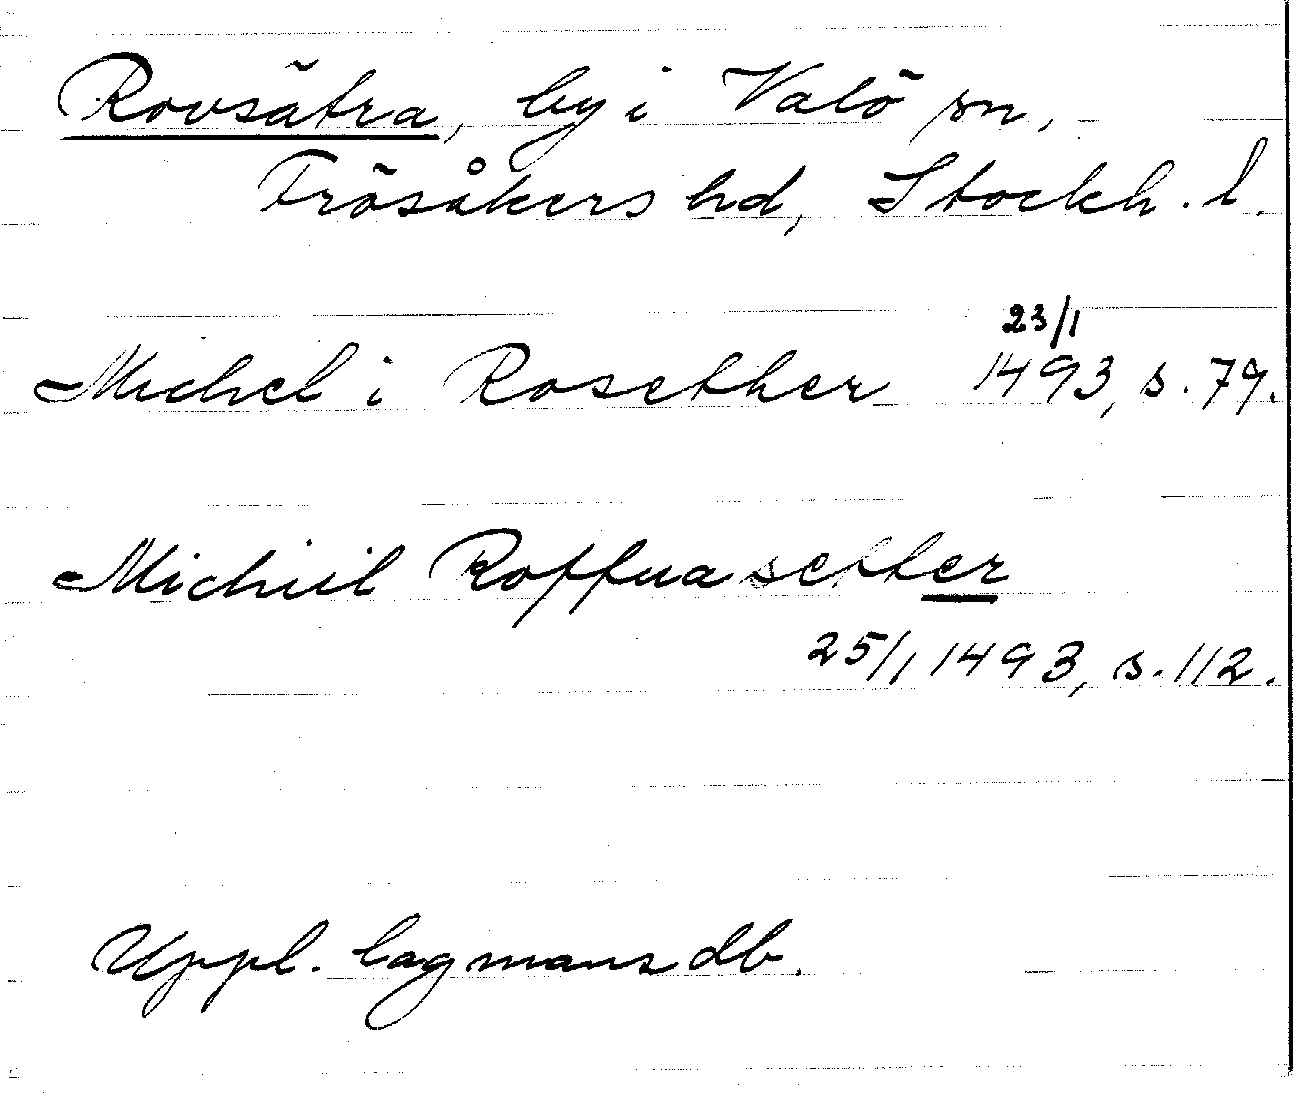 Rovsätra, by i Valö sn,
Frösåkers hd, Stockh. l.
23/1
Michel i Rosether 1493, s. 79.
Michiil Roffuasetter
25/1 1493, s. 112.
Uppl. lagmansdb.